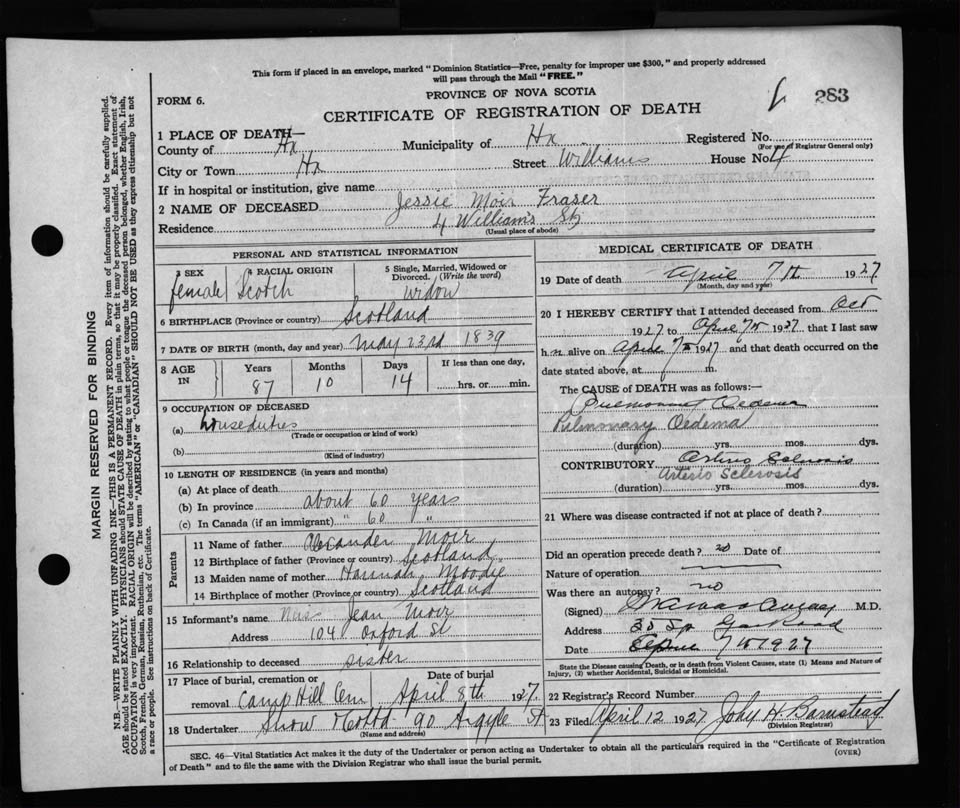 This form if placed in an envelope, marked "Dominion Statistics—Free, penalty for improper use $300," and properly addressed
will pass through the Mail "FREE."
PROVINCE OF NOVA SCOTIA
FORM 6.
CERTIFICATE OF REGISTRATION OF DEATH
283
1 PLACE OF DEATH—
County of Hx Municipality of Hx Registered No.
(For use of Registrar General only)
City or Town Hx Street Williams House No. 4
If in hospital or institution, give name
2 NAME OF DECEASED Jessie Moir Fraser
Residence 4 William's St
(Usual place of abode)
PERSONAL AND STATISTICAL INFORMATION
3 SEX female
4 RACIAL ORIGIN Scotch
5 Single, Married, Widowed or Divorced. (Write the word) widow
6 BIRTHPLACE (Province or country) Scotland
7 DATE OF BIRTH (month, day and year) May 23rd 1839
8 AGE IN Years 87 Months 10 Days 14 If less than one day, hrs. or min.
9 OCCUPATION OF DECEASED
(a) house duties
(Trade or occupation or kind of work)
(b)
(Kind of industry)
10 LENGTH OF RESIDENCE (in years and months)
(a) At place of death
(b) In province about 60 years
(c) In Canada (if an immigrant) " 60 "
Parents
11 Name of father Alexander Moir
12 Birthplace of father (Province or country) Scotland
13 Maiden name of mother Hannah Moodie
14 Birthplace of mother (Province or country) Scotland
15 Informant's name Miss Jean Moir
Address 104 Oxford St
16 Relationship to deceased sister
17 Place of burial, cremation or removal Camp Hill Cem Date of burial April 8th 1927
18 Undertaker Snow & Co Ltd 90 Argyle St
(Name and address)
MEDICAL CERTIFICATE OF DEATH
19 Date of death April 7th 1927
(Month, day and year)
20 I HEREBY CERTIFY that I attended deceased from Oct
1927 to April 7th 1927 that I last saw
h alive on April 7th 1927 and that death occurred on the
date stated above, at m.
The CAUSE of DEATH was as follows:—
Pulmonary Oedema
Pulmonary Oedema
(duration) yrs. mos. dys.
CONTRIBUTORY Arterio Sclerosis
Arterio Sclerosis
(duration) yrs. mos. dys.
21 Where was disease contracted if not at place of death?
Did an operation precede death? no Date of
Nature of operation
Was there an autopsy? no
(Signed) M.D.
Address Road
Date April 7th 1927
State the Disease causing Death, or in death from Violent Causes, state (1) Means and Nature of
Injury, (2) whether Accidental, Suicidal or Homicidal.
22 Registrar's Record Number
23 Filed April 12 1927 John H Barnstead
(Division Registrar)
SEC. 46—Vital Statistics Act makes it the duty of the Undertaker or person acting as Undertaker to obtain all the particulars required in the "Certificate of Registration
of Death" and to file the same with the Division Registrar who shall issue the burial permit.
(OVER)
MARGIN RESERVED FOR BINDING
N.B.—WRITE PLAINLY WITH UNFADING INK—THIS IS A PERMANENT RECORD. Every item of information should be carefully supplied.
AGE should be stated EXACTLY. PHYSICIANS should STATE CAUSE OF DEATH in plain terms, so that it may be properly classified. Exact statement of
OCCUPATION is very important. RACIAL ORIGIN will be described by stating to what people or tongue the deceased person belonged, whether English, Irish,
Scotch, French, German, Russian, Ruthenian, etc. The terms "AMERICAN" or "CANADIAN" SHOULD NOT BE USED as they express citizenship but not
a race or people. See instructions on back of Certificate.